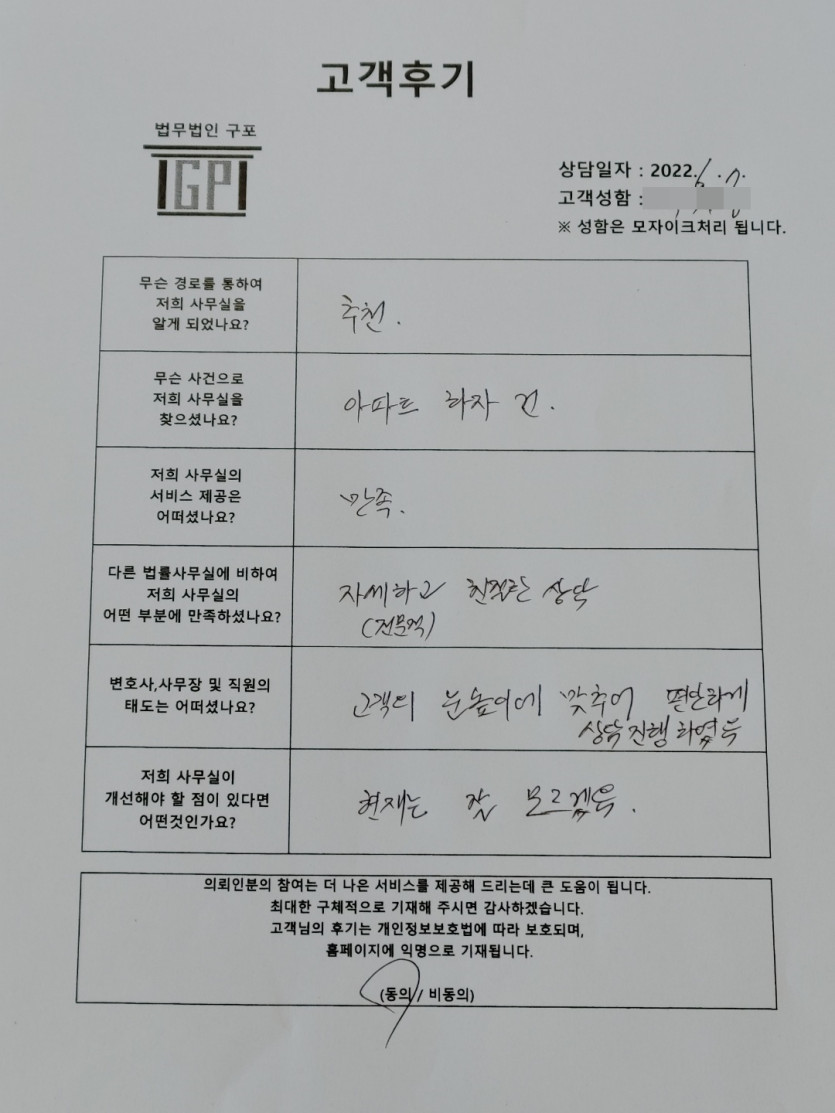 고객후기
법무법인 구포
IGPI
상담일자 : 2022. 6. 7.
고객성함 :
※ 성함은 모자이크처리 됩니다.
무슨 경로를 통하여
저희 사무실을
알게 되었나요?
추천.
무슨 사건으로
저희 사무실을
찾으셨나요?
아파트 하자 건.
저희 사무실의
서비스 제공은
어떠셨나요?
만족.
다른 법률사무실에 비하여
저희 사무실의
어떤 부분에 만족하셨나요?
자세하고 친절한 상담
(전문적)
변호사,사무장 및 직원의
태도는 어떠셨나요?
고객의 눈높이에 맞추어 편안하게
상담 진행 하였음
저희 사무실이
개선해야 할 점이 있다면
어떤것인가요?
현재는 잘 모르겠음.
의뢰인분의 참여는 더 나은 서비스를 제공해 드리는데 큰 도움이 됩니다.
최대한 구체적으로 기재해 주시면 감사하겠습니다.
고객님의 후기는 개인정보보호법에 따라 보호되며,
홈페이지에 익명으로 기재됩니다.
(동의 / 비동의)